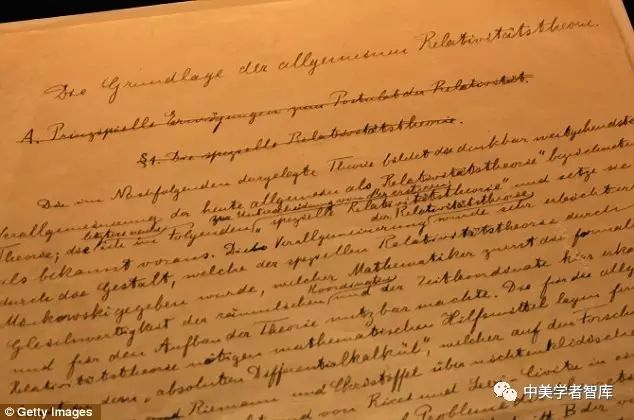 Die Grundlage der allgemeinen Relativitätstheorie.
A. Prinzipielle Erwägungen zum Postulat der Relativität.
§1. Die spezielle Relativitätstheorie.
Die im Nachfolgenden dargelegte Theorie bildet die denkbar weitgehendste
Verallgemeinerung der heute allgemein als „Relativitätstheorie" bezeichneten
letztere nenne zur Unterscheidung von der ersteren
Theorie; die ich im Folgenden „spezielle Relativitätstheorie" und setze sie
der Relativitätstheorie
als bekannt voraus. Die Verallgemeinerung wurde sehr erleichtert
durch die Gestalt, welche der speziellen Relativitätstheorie durch
Minkowski gegeben wurde, welcher Mathematiker zuerst die formale
Koordinaten
Gleichwertigkeit der räumlichen und der Zeitkoordinate klar
und für den Aufbau der Theorie nutzbar machte. Die für die
Relativitätstheorie nötigen mathematischen Hilfsmittel lagen
dem „absoluten Differentialkalkül", welcher auf den
Riemann und Christoffel über
und von Ricci und Levi-Civita in
Probleme
© Getty Images
中美学者智库